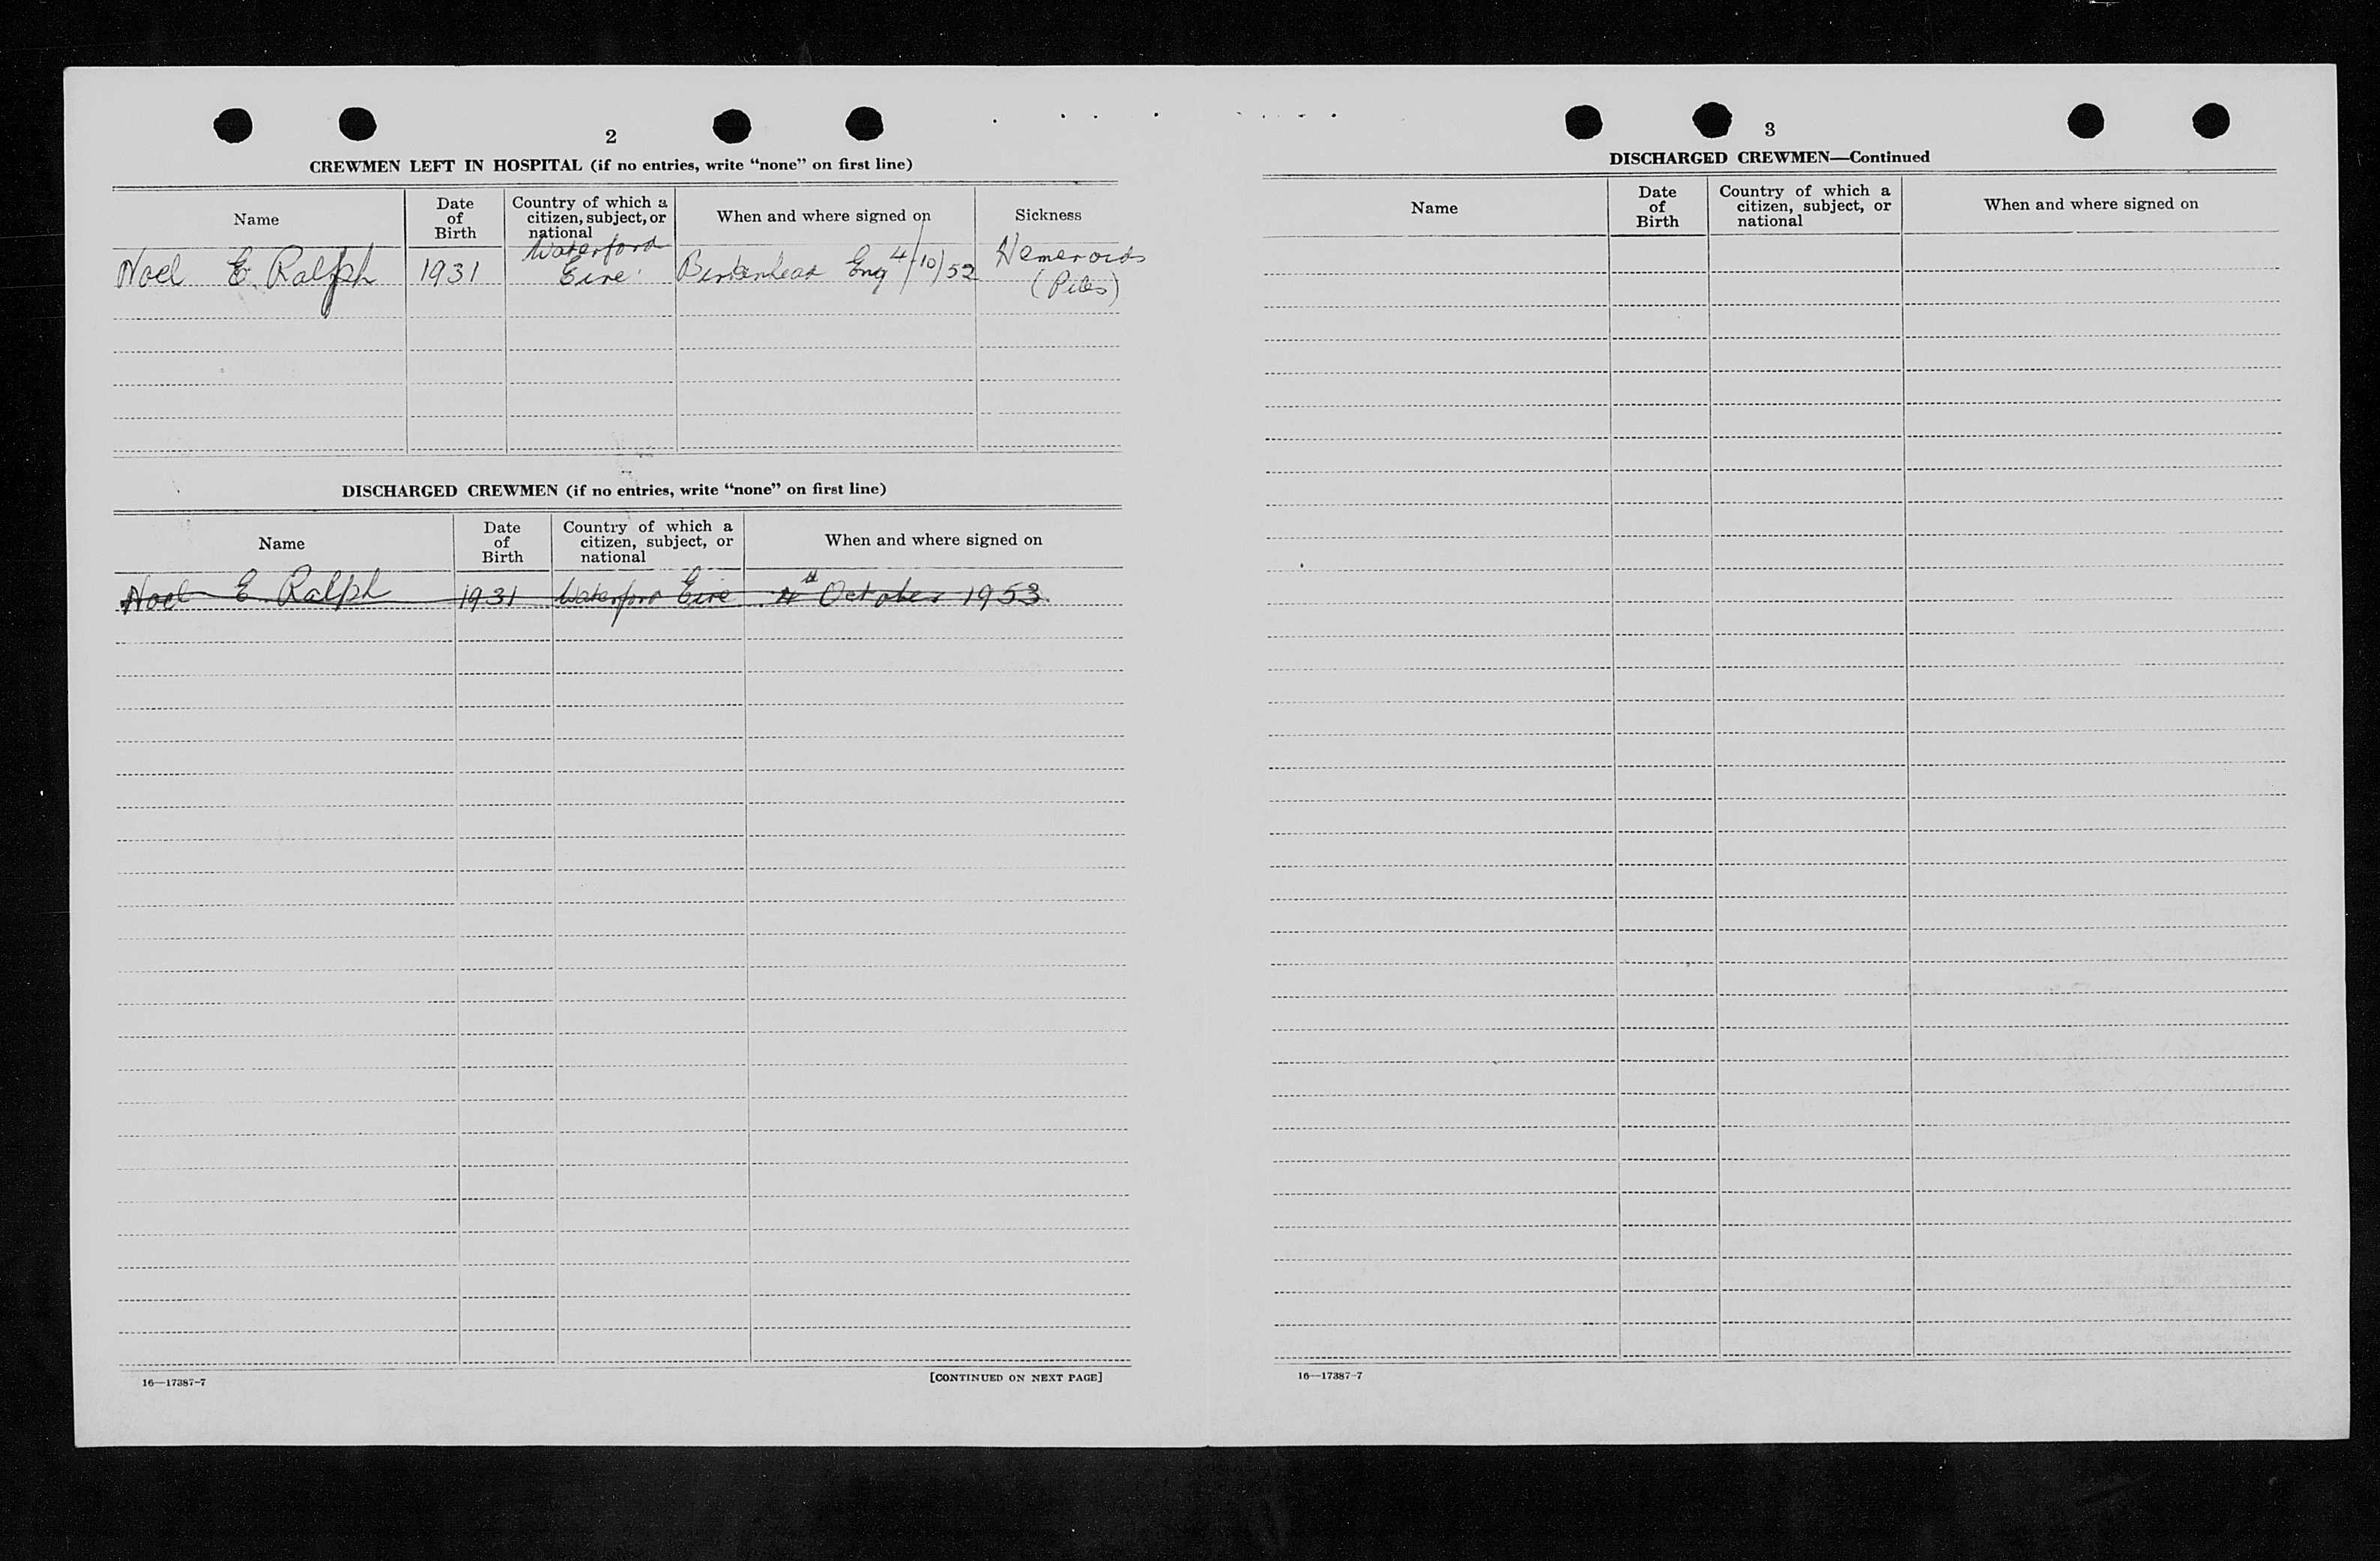 2
CREWMEN LEFT IN HOSPITAL (if no entries, write “none” on first line)
Name
Date
of
Birth
Country of which a
citizen, subject, or
national
When and where signed on
Sickness
Waterford
Noel E. Ralph 1931 Eire Birkenhead Eng 4/10/52 Hemeroids
(Piles)
DISCHARGED CREWMEN (if no entries, write “none” on first line)
Name
Date
of
Birth
Country of which a
citizen, subject, or
national
When and where signed on
Noel E Ralph 1931 Waterford Eire 4 October 1953.
16—17387-7
[CONTINUED ON NEXT PAGE]
3
DISCHARGED CREWMEN—Continued
Name
Date
of
Birth
Country of which a
citizen, subject, or
national
When and where signed on
16—17387-7